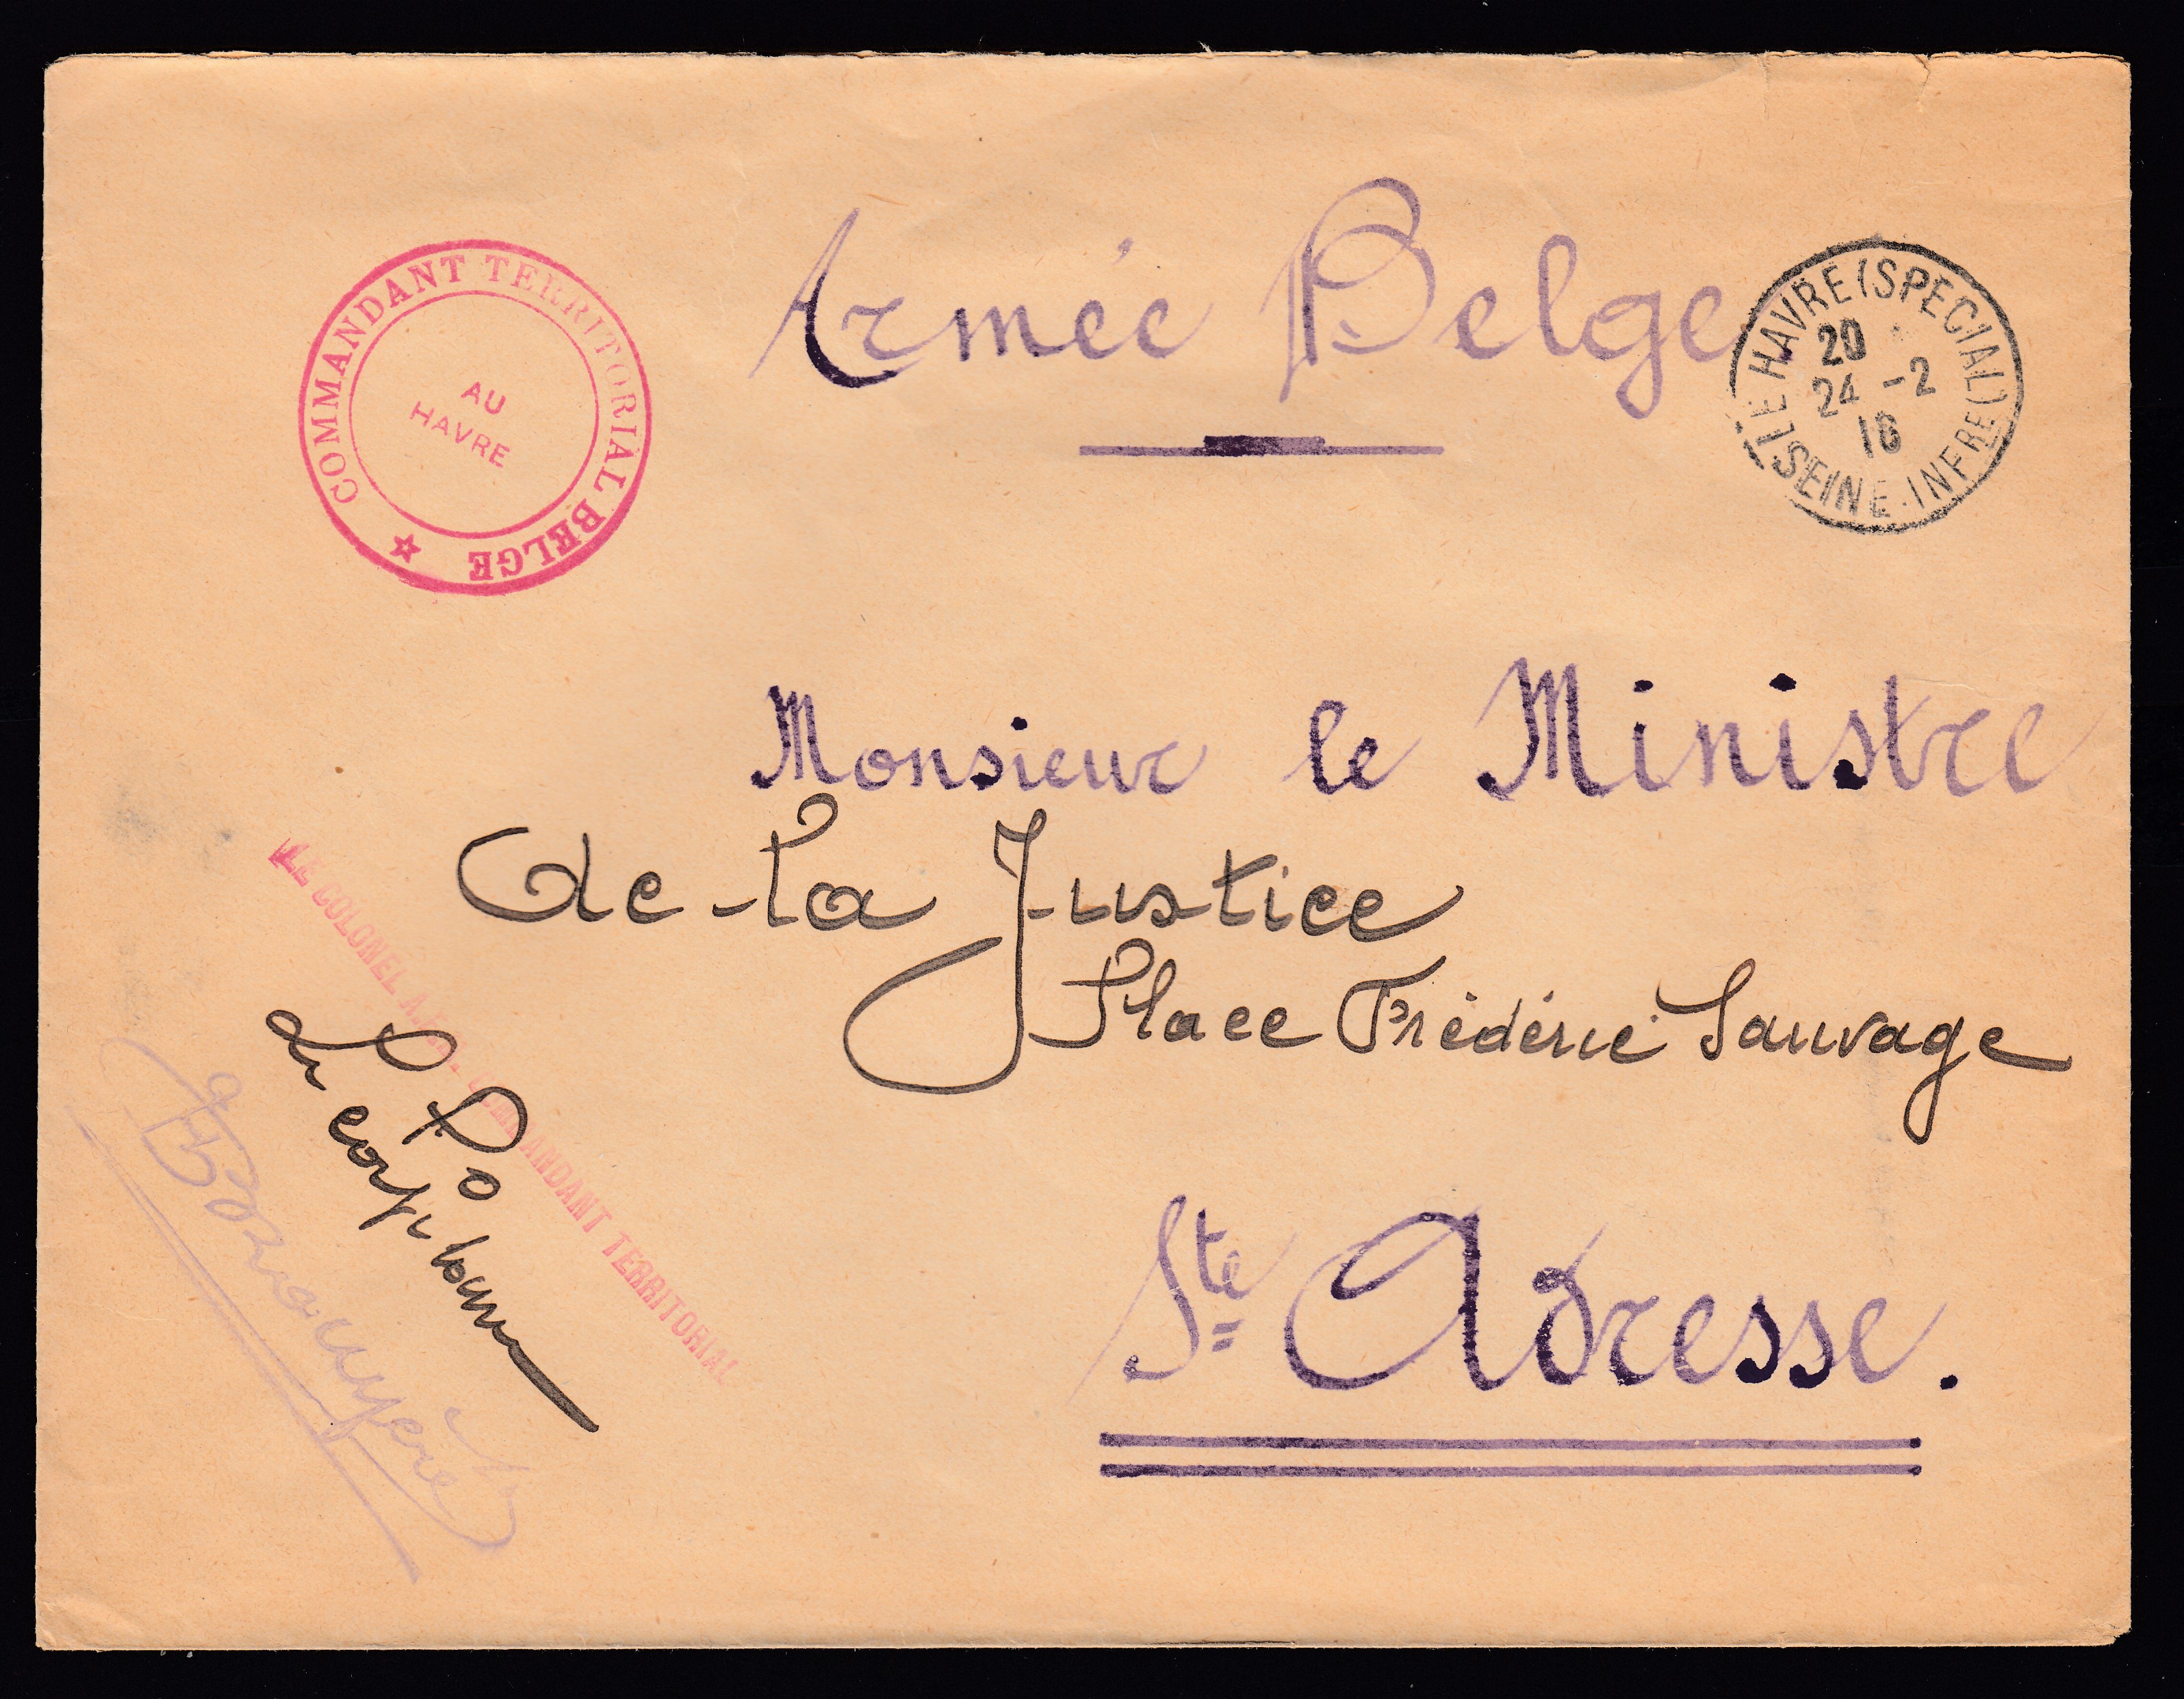 Armée Belge
COMMANDANT TERRITORIAL BELGE
AU
HAVRE
LE HAVRE (SPECIAL)
20
24 -2
16
SEINE-INFRE
Monsieur le Ministre
de la Justice
Place Frédéric Sauvage
Ste Adresse.
LE COLONEL COMMANDANT TERRITORIAL
P O